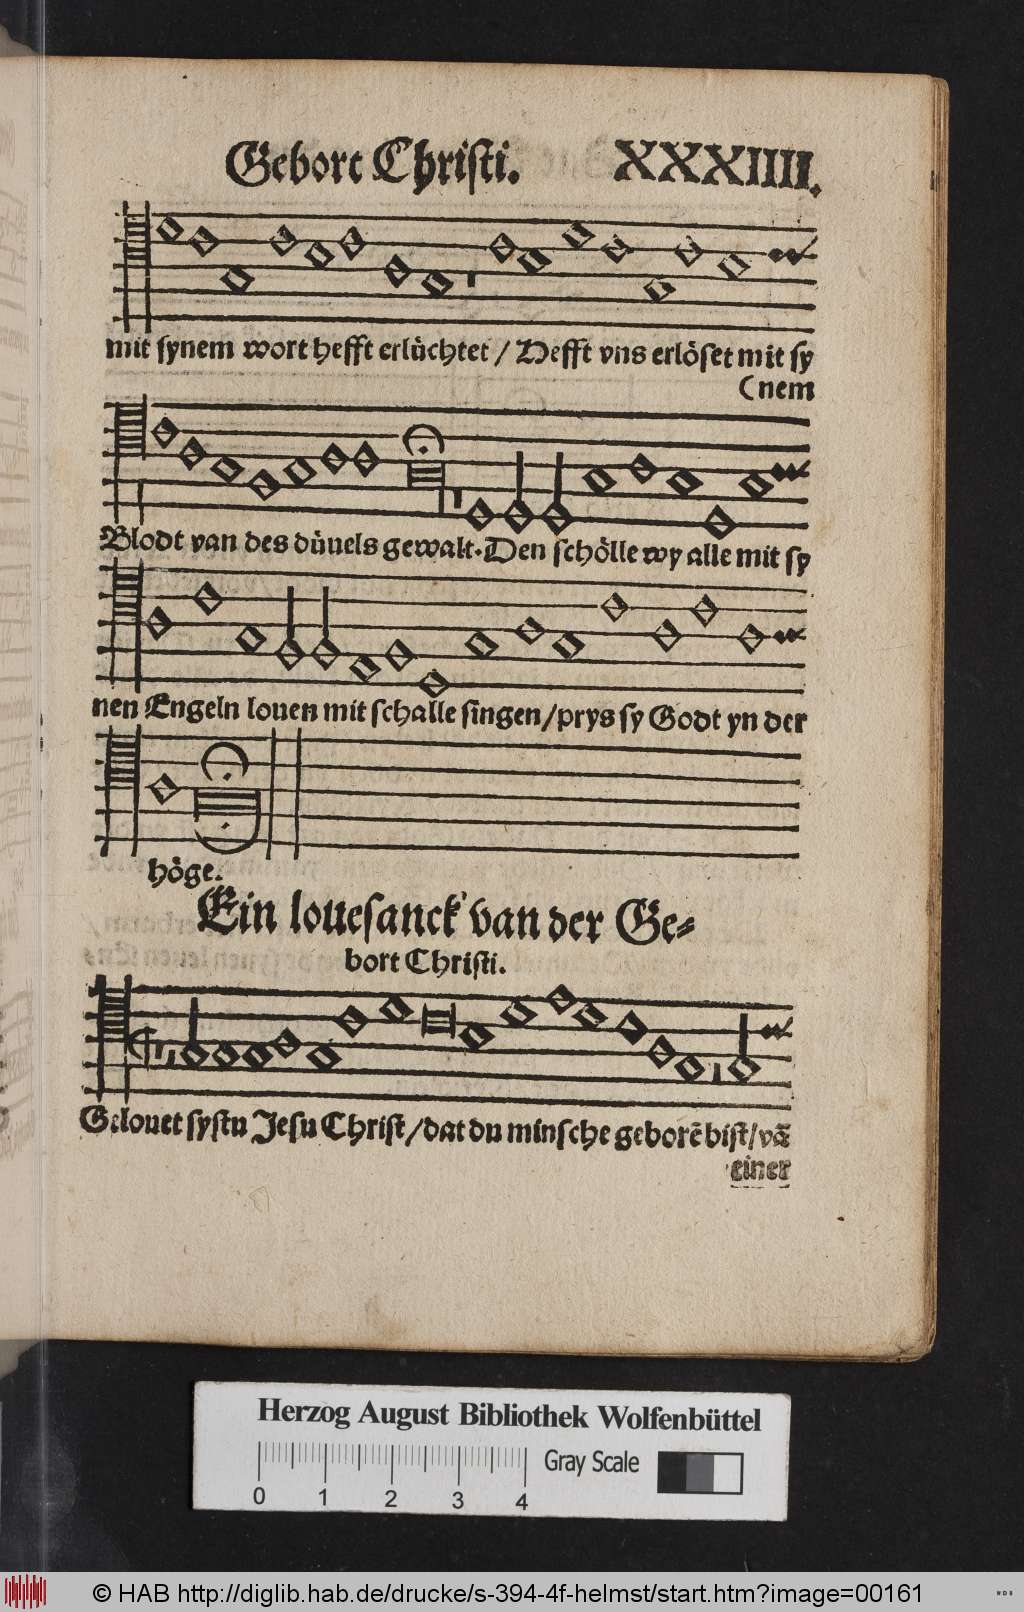 Gebort Christi. XXXIIII.
mit synem wort hefft erlüchtet / Hefft vns erlöset mit sy
(nem
Blodt van des düuels gewalt. Den schölle wy alle mit sy
nen Engeln louen mit schalle singen / prys sy Godt yn der
höge.
Ein louesanck van der Ge-
bort Christi.
Gelouet systu Jesu Christ / dat du minsche geborē bist / vā
einer
Herzog August Bibliothek Wolfenbüttel
0 1 2 3 4 Gray Scale
© HAB http://diglib.hab.de/drucke/s-394-4f-helmst/start.htm?image=00161